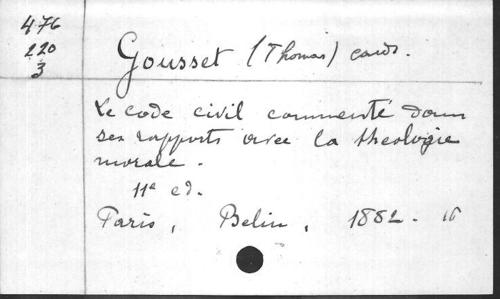 476
220
3
Gousset (Thomas) card.
Le code civil commenté dans
ses rapports avec la theologie
morale.
11e ed.
Paris, Belin, 1882. 16